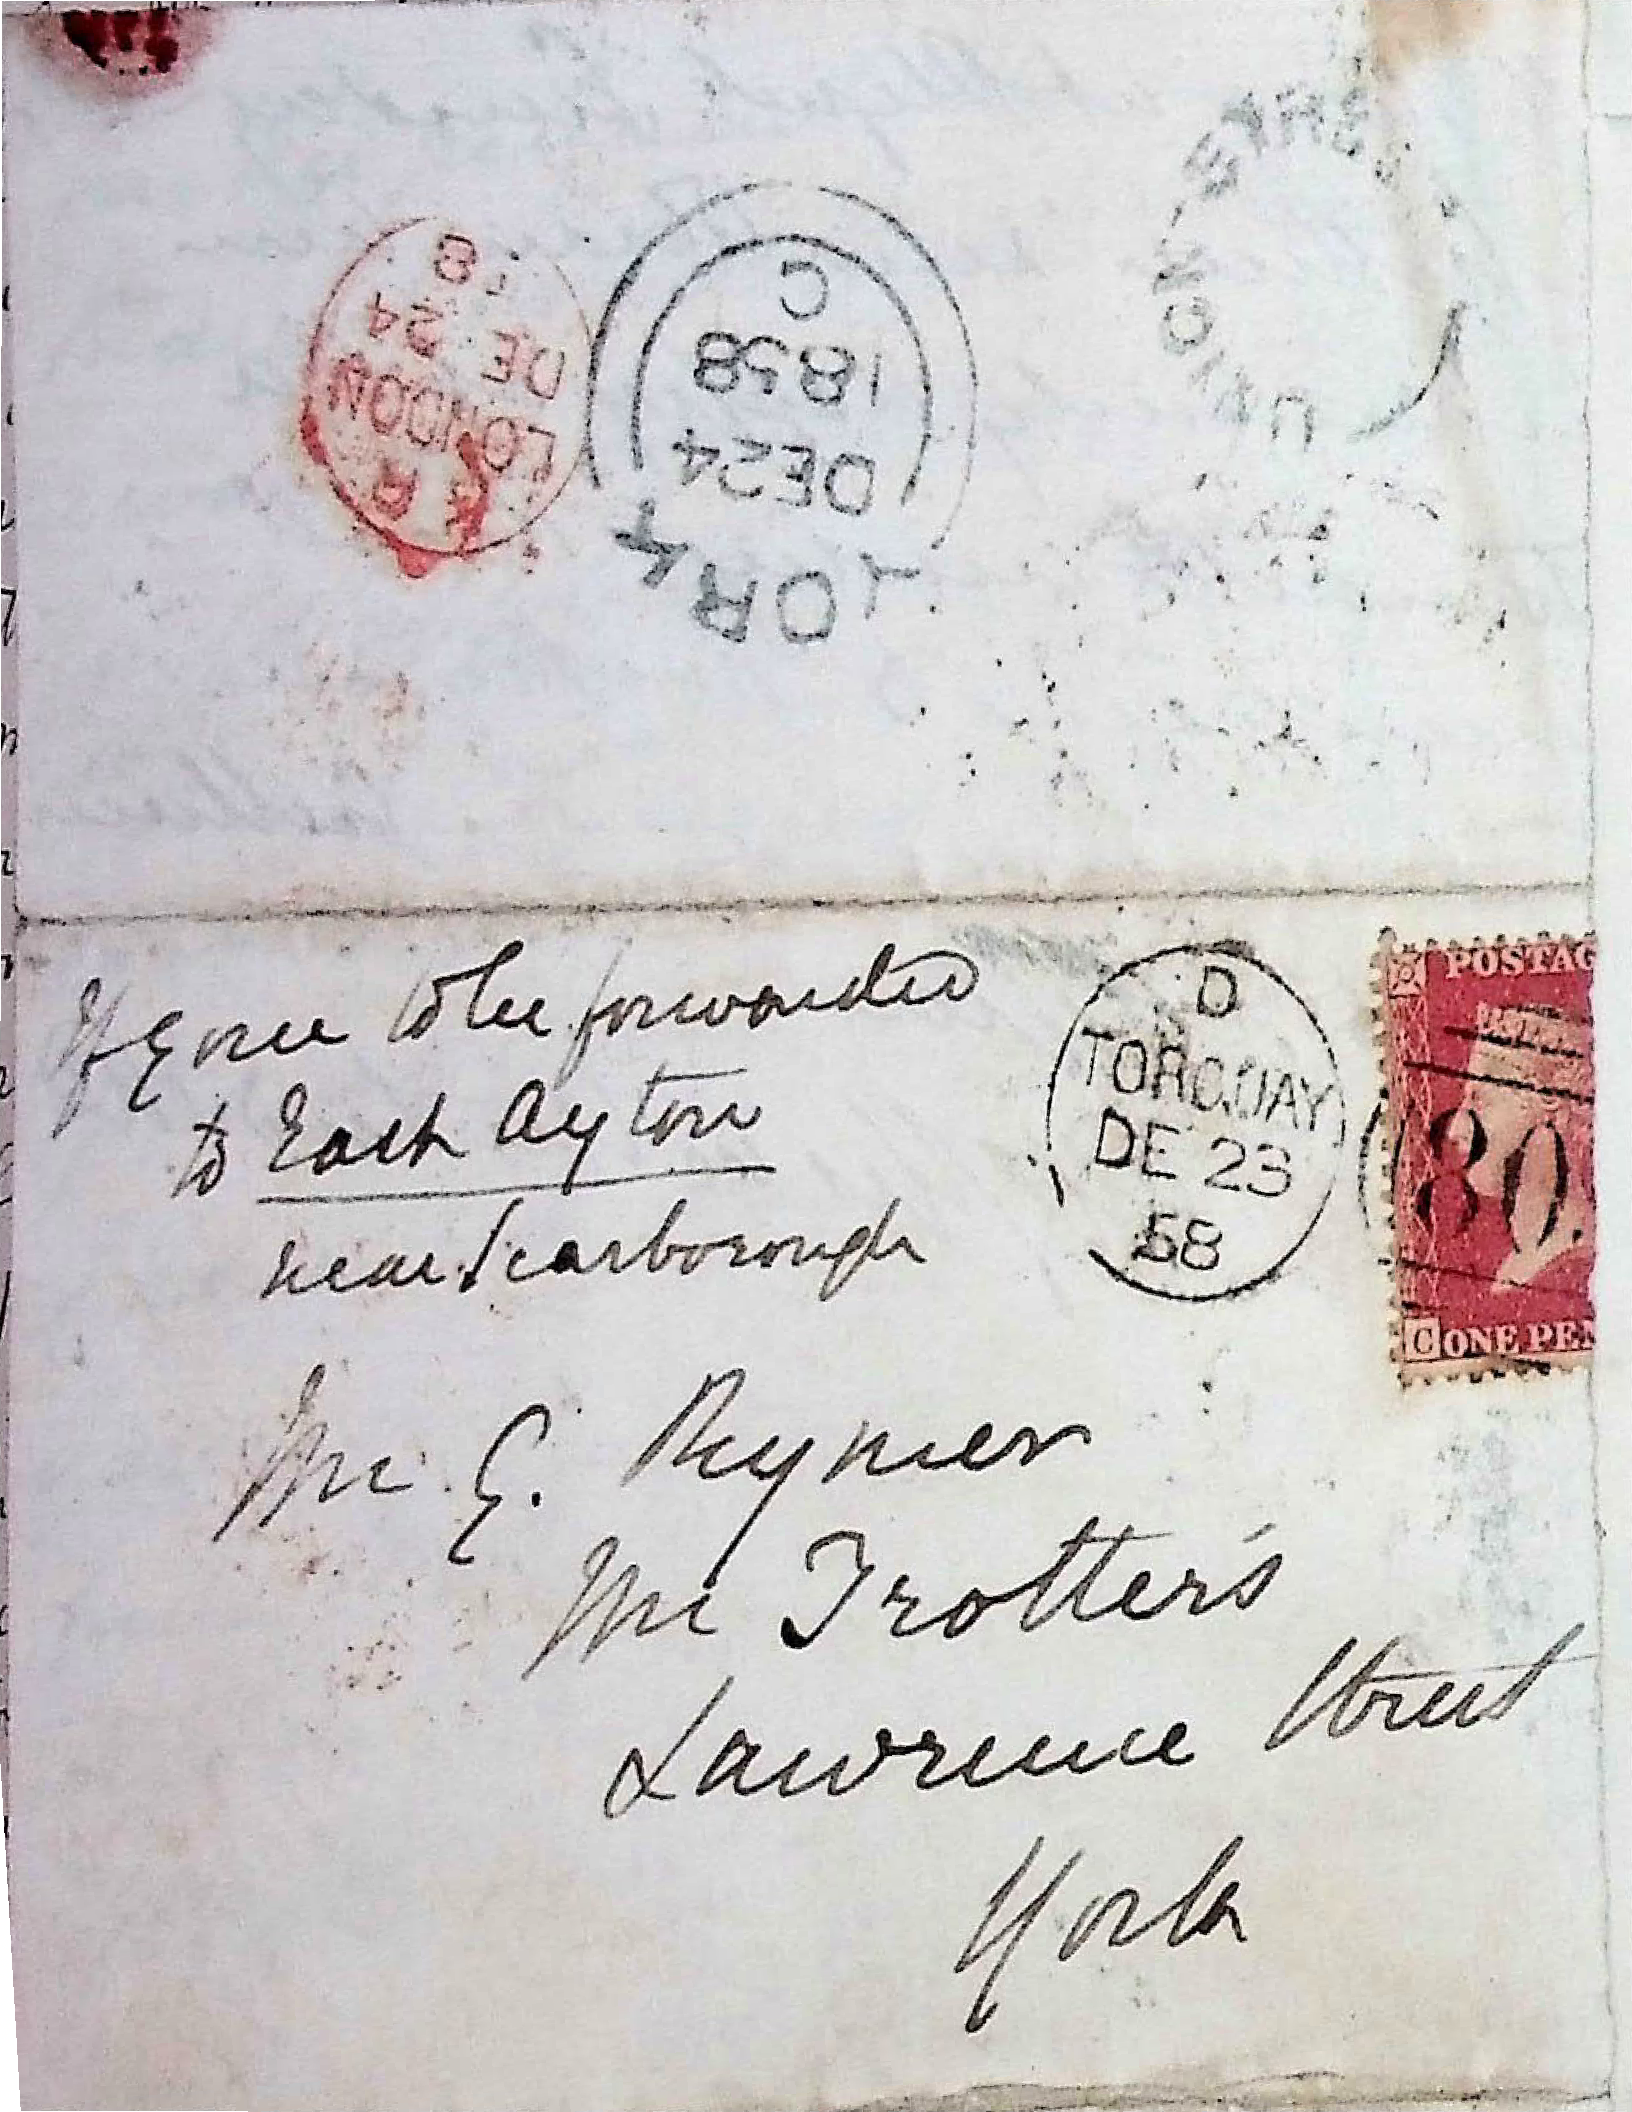 UNION STRE
8
DE 24
LONDON
YORK
DE 24
1858
C
If gone to be forwarded
to East Ayton
near Scarborough
D
TORQUAY
DE 23
58
POSTAG
80
C ONE PEN
Mr. E. Rymer
Mr Trotter's
Lawrence Street
York